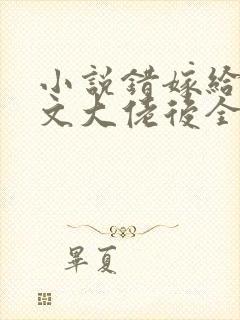 小說錯嫁給
文大佬後全
畢夏